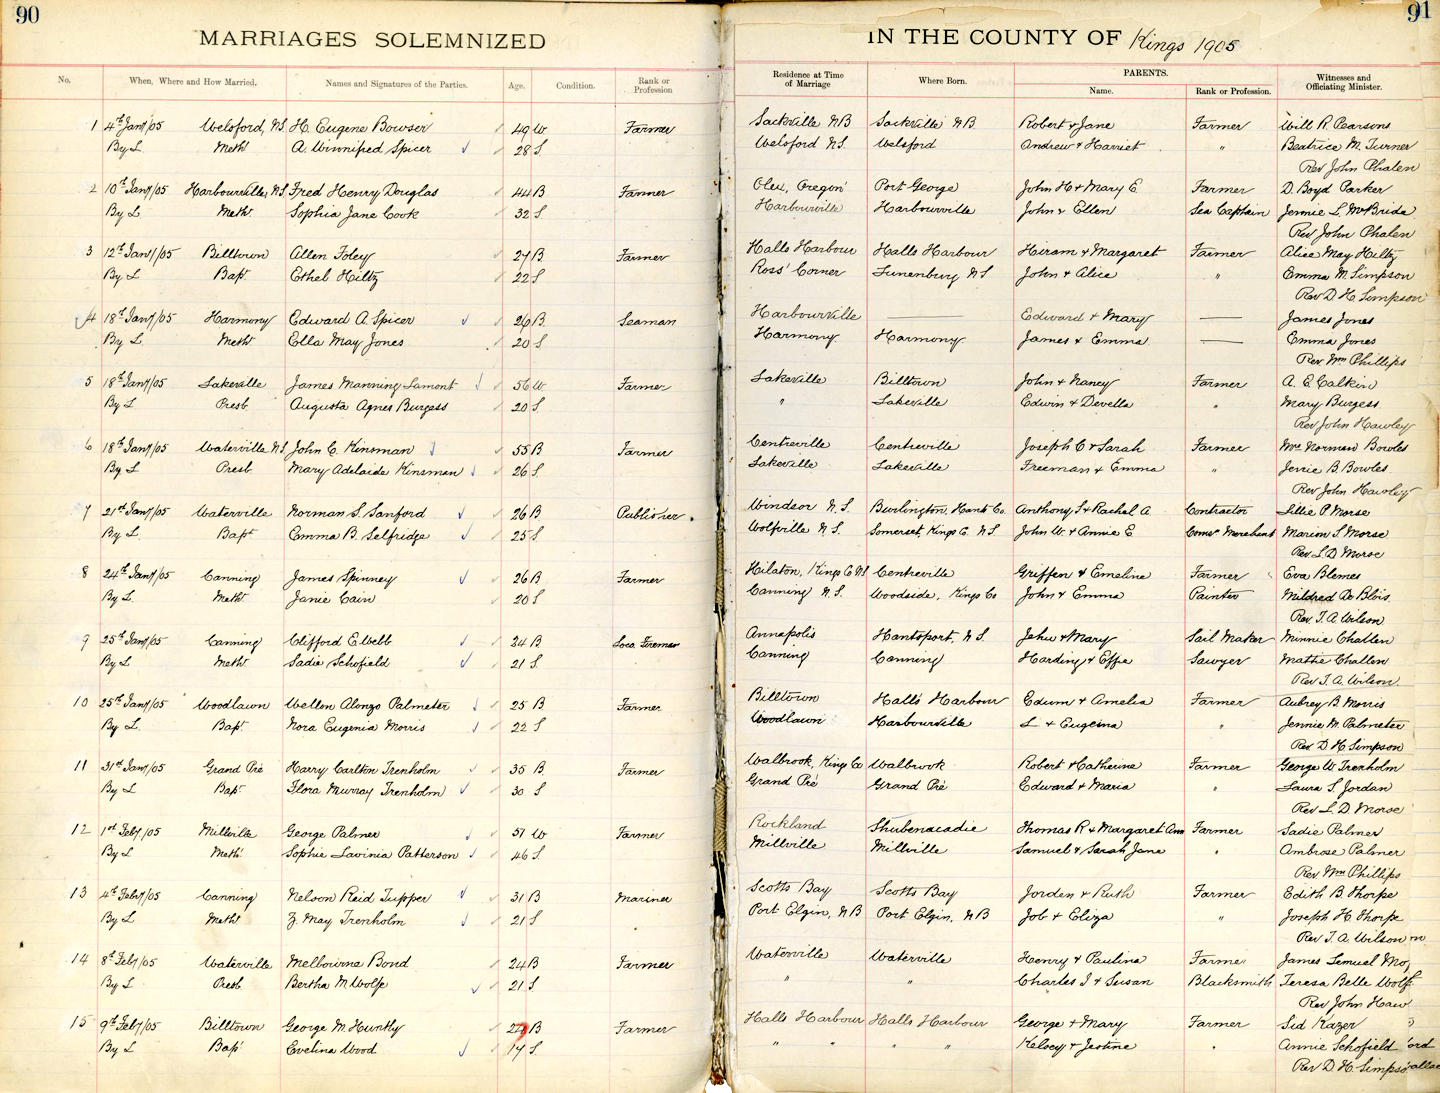 90
MARRIAGES SOLEMNIZED
No. When, Where and How Married. Names and Signatures of the Parties. Age. Condition. Rank or Profession
1 4th Jany/05 Welsford, N.S. H. Eugene Bowser 49 W Farmer
By L Meth A. Winnifred Spicer 28 S.
2 10th Jany/05 Harbourville, N.S. Fred Henry Douglas 44 B Farmer
By L. Meth. Sophia Jane Cook 32 S.
3 12th Jany/05 Billtown Allen Foley 27 B Farmer
By L. Bapt Ethel Hiltz 22 S.
4 18th Jany/05 Harmony Edward A. Spicer 26 B. Seaman
By L. Meth Ella May Jones 20 S
5 18th Jany/05 Lakeville James Manning Lamont 56 W. Farmer
By L Presb. Augusta Agnes Burgess 20 S.
6 18th Jany/05 Waterville N.S. John C. Kinsman 55 B Farmer
By L. Presb Mary Adelaide Kinsman 26 S.
7 21st Jany/05 Waterville Norman S. Sanford 26 B Publisher
By L. Bapt Emma B. Selfridge 25 S.
8 24th Jany/05 Canning James Spinney 26 B Farmer
By L. Meth Janie Cain 20 S.
9 25th Jany/05 Canning Clifford E. Webb 34 B Loco. Fireman
By L. Meth Sadie Schofield 21 S.
10 25th Jany/05 Woodlawn Wellen Alonzo Palmeter 25 B Farmer
By L. Bapt Nora Eugenia Morris 22 S.
11 31st Jany/05 Grand Pré Harry Carlton Trenholm 35 B. Farmer
By L. Bapt Flora Murray Trenholm 30 S
12 1st Feby/05 Millville George Palmer 57 W Farmer
By L Meth. Sophie Lavinia Patterson 46 S.
13 4th Feby/05 Canning Nelson Reid Tupper 31 B Mariner
By L. Meth Z. May Trenholm 21 S
14 8th Feby/05 Waterville Melbourne Bond 24 B Farmer
By L Presb Bertha M Wolfe 21 S
15 9th Feby/05 Billtown George M. Huntly B Farmer
By L Bapt Evelina Wood 17 S.
91
IN THE COUNTY OF Kings 1905
Residence at Time of Marriage Where Born. PARENTS. Name. Rank or Profession. Witnesses and Officiating Minister.
Sackville N B Sackville N B Robert & Jane Farmer Will R. Pearsons
Welsford N.S. Welsford Andrew & Harriet " Beatrice M. Turner
Rev John Phalen
Olex, Oregon Port George John H & Mary E. Farmer D. Boyd Parker
Harbourville Harbourville John & Ellen Sea Captain Jennie L. McBride
Rev John Phalen
Halls Harbour Halls Harbour Hiram & Margaret Farmer Alice May Hiltz
Ross' Corner Lunenburg N S John & Alice " Emma M. Simpson
Rev D. H. Simpson
Harbourville — Edward & Mary — James Jones
Harmony Harmony James & Emma — Emma Jones
Rev Wm Phillips
Lakeville Billtown John & Nancy Farmer A. E. Calkin
" Lakeville Edwin & Devella " Mary Burgess
Rev John Hawley
Centreville Centreville Joseph C & Sarah Farmer Mrs Norman Bowles
Lakeville Lakeville Freeman & Emma " Jennie B. Bowles
Rev John Hawley
Windsor N.S. Burlington, Hants Co. Anthony S & Rachel A Contractor Lillie P Morse
Wolfville N.S. Somerset, Kings C. N.S. John W. & Annie E Coms Merchant Marion S Morse
Rev L D Morse
Hilaton, Kings Co N.S Centreville Griffen & Emeline Farmer Eva Blemes
Canning N.S. Woodside, Kings Co John & Emma Painter Mildred De Blois
Rev. T. A. Wilson
Annapolis Hantsport, N.S. John & Mary Sail Maker Minnie Challen
Canning Canning Harding & Effie Sawyer Mattie Challen
Rev. T. A. Wilson
Billtown Hall's Harbour Edwin & Amelia Farmer Aubrey B. Morris
Woodlawn Harbourville L & Eugenia " Jennie M. Palmeter
Rev D H Simpson
Walbrook, Kings Co Walbrook Robert & Catherine Farmer George W. Trenholm
Grand Pré Grand Pré Edward & Maria " Laura S. Jordan
Rev L. D Morse
Rockland Shubenacadie Thomas R & Margaret Ann Farmer Sadie Palmer
Millville Millville Samuel & Sarah Jane " Ambrose Palmer
Rev Wm Phillips
Scotts Bay Scotts Bay Jorden & Ruth Farmer Edith B Thorpe
Port Elgin, N B Port Elgin, N B Job & Eliza " Joseph H Thorpe
Rev T. A Wilson
Waterville Waterville Henry & Paulina Farmer James Lemuel
" " Charles I & Susan Blacksmith Teresa Belle Wolfe
Rev John Haw
Halls Harbour Halls Harbour George & Mary Farmer Sid Kazer
" " " " Kelsey & Jestine " Annie Schofield
Rev D. H. Simpso